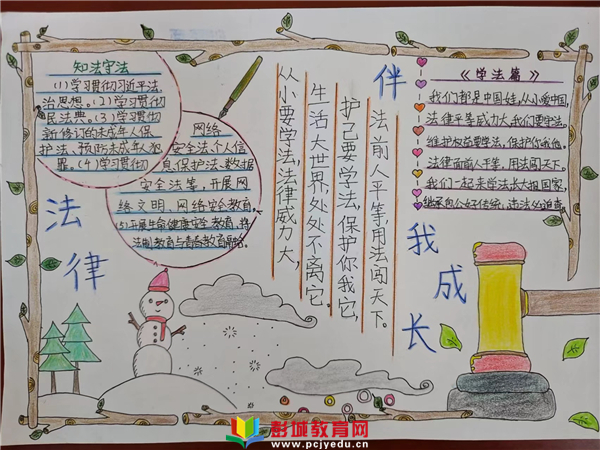 知法守法
(1)学习贯彻习近平法
治思想。(2)学习贯彻
民法典。(3)学习贯彻
新修订的未成年人保
护法、预防未成年人犯
罪。(4)学习贯彻
网络
安全法、个人信
息保护法、数据
安全法等,开展网
络文明、网络安全教育。
(5)开展生命健康安全教育,将
法制教育与青春教育
从小要学法,法律威力大,
生活大世界,处处不离它。
护己要学法,保护你我它,
法前人平等,用法闯天下。
《学法篇》
我们都是中国娃,从小爱中国,
法律平等威力大,我们要学法,
维护权益要学法,保护你我他。
法律面前人平等,用法闯天下。
我们一起来学法,长大祖国家,
继承
法律
伴
我成长
彭城教育网
www.pcjyedu.cn